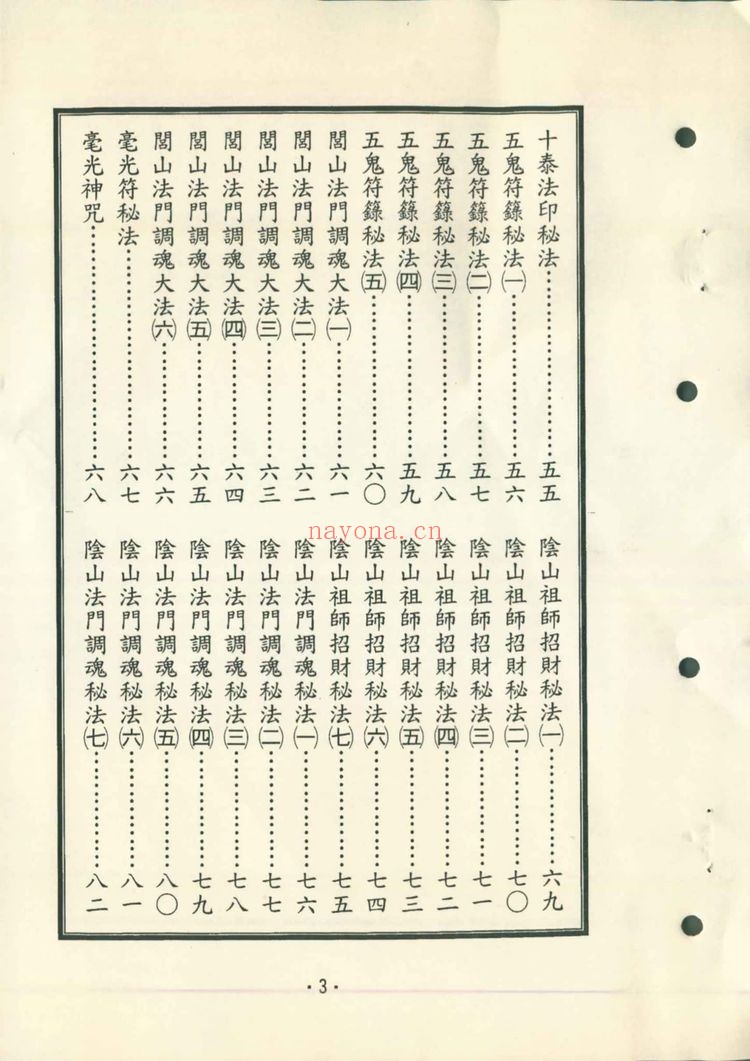 十泰法印秘法……五五
五鬼符籙秘法㈠……五六
五鬼符籙秘法㈡……五七
五鬼符籙秘法㈢……五八
五鬼符籙秘法㈣……五九
五鬼符籙秘法㈤……六〇
閭山法門調魂大法㈠……六一
閭山法門調魂大法㈡……六二
閭山法門調魂大法㈢……六三
閭山法門調魂大法㈣……六四
閭山法門調魂大法㈤……六五
閭山法門調魂大法㈥……六六
毫光符秘法……六七
毫光神咒……六八
陰山祖師招財秘法㈠……六九
陰山祖師招財秘法㈡……七〇
陰山祖師招財秘法㈢……七一
陰山祖師招財秘法㈣……七二
陰山祖師招財秘法㈤……七三
陰山祖師招財秘法㈥……七四
陰山祖師招財秘法㈦……七五
陰山法門調魂秘法㈠……七六
陰山法門調魂秘法㈡……七七
陰山法門調魂秘法㈢……七八
陰山法門調魂秘法㈣……七九
陰山法門調魂秘法㈤……八〇
陰山法門調魂秘法㈥……八一
陰山法門調魂秘法㈦……八二
nayona.cn
·3·